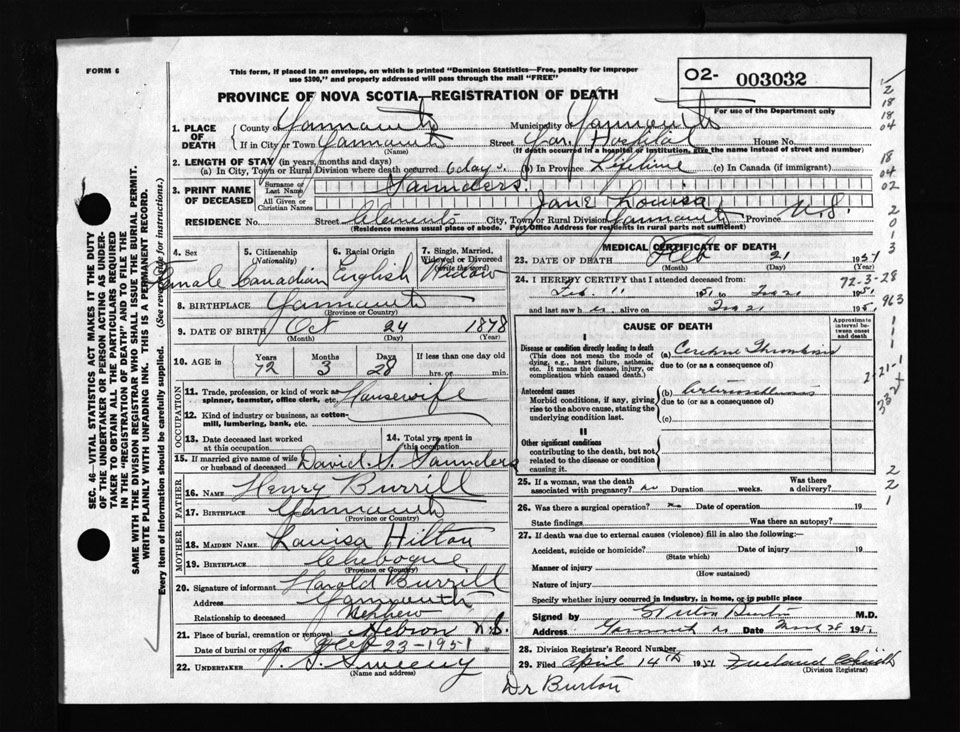 FORM 6
This form, if placed in an envelope, on which is printed "Dominion Statistics—Free, penalty for improper
use $300," and properly addressed will pass through the mail "FREE"
O2- 003032
For use of the Department only
PROVINCE OF NOVA SCOTIA—REGISTRATION OF DEATH
1. PLACE OF DEATH County of Yarmouth Municipality of Yarmouth
If in City or Town Yarmouth (Name) Street Yar. Hospital House No.
(If death occurred in a hospital or institution, give the name instead of street and number)
2. LENGTH OF STAY (in years, months and days)
(a) In City, Town or Rural Division where death occurred 6 days. (b) In Province Lifetime (c) In Canada (if immigrant)
3. PRINT NAME OF DECEASED Surname or Last Name Saunders.
All Given or Christian Names Jane Louisa
RESIDENCE No. Street Clements City, Town or Rural Division Yarmouth Province N.S.
(Residence means usual place of abode. Post Office Address for residents in rural parts not sufficient)
4. Sex Female
5. Citizenship (Nationality) Canadian
6. Racial Origin English
7. Single, Married, Widowed or Divorced (write the word) Widow
8. BIRTHPLACE Yarmouth
(Province or Country)
9. DATE OF BIRTH Oct 24 1878
(Month) (Day) (Year)
10. AGE in Years 72 Months 3 Days 28 If less than one day old
hrs. or min.
OCCUPATION
11. Trade, profession, or kind of work as spinner, teamster, office clerk, etc. Housewife
12. Kind of industry or business, as cotton-mill, lumbering, bank, etc.
13. Date deceased last worked at this occupation
14. Total yrs. spent in this occupation
15. If married give name of wife or husband of deceased David S. Saunders
FATHER
16. NAME Henry Burrill
17. BIRTHPLACE Yarmouth
(Province or Country)
MOTHER
18. MAIDEN NAME Louisa Hilton
19. BIRTHPLACE Chebogue
(Province or Country)
20. Signature of informant Harold Burrill
Address Yarmouth
Relationship to deceased Nephew
21. Place of burial, cremation or removal Hebron N.S.
Date of burial or removal Feb 23-1951
22. UNDERTAKER J. S. Sweeny
(Name and address)
MEDICAL CERTIFICATE OF DEATH
23. DATE OF DEATH Feb 21 1951
(Month) (Day) (Year)
24. I HEREBY CERTIFY that I attended deceased from:
Feb. 11 1951 to Feb 21 1951
and last saw h er alive on Feb 21 1951
72-3-28
963
CAUSE OF DEATH
Approximate interval between onset and death
I
Disease or condition directly leading to death
(This does not mean the mode of dying, e.g., heart failure, asthenia, etc. It means the disease, injury, or complication which caused death.)
(a) Cerebral Thrombosis
due to (or as a consequence of)
Antecedent causes
Morbid conditions, if any, giving rise to the above cause, stating the underlying condition last.
(b) Arteriosclerosis
due to (or as a consequence of)
(c)
II
Other significant conditions
contributing to the death, but not related to the disease or condition causing it.
25. If a woman, was the death associated with pregnancy? no Duration weeks. Was there a delivery?
26. Was there a surgical operation? no Date of operation 19
State findings Was there an autopsy?
27. If death was due to external causes (violence) fill in also the following:—
Accident, suicide or homicide? Date of injury 19
(State which)
Manner of injury
(How sustained)
Nature of injury
Specify whether injury occurred in industry, in home, or in public place
Signed by Burton M.D.
Address Yarmouth NS Date 1951
28. Division Registrar's Record Number
29. Filed April 14th 1951
(Division Registrar)
Dr Burton
SEC. 46—VITAL STATISTICS ACT MAKES IT THE DUTY
OF THE UNDERTAKER OR PERSON ACTING AS UNDER-
TAKER TO OBTAIN ALL THE PARTICULARS REQUIRED
IN THE "REGISTRATION OF DEATH" AND TO FILE THE
SAME WITH THE DIVISION REGISTRAR WHO SHALL ISSUE THE BURIAL PERMIT.
WRITE PLAINLY WITH UNFADING INK. THIS IS A PERMANENT RECORD.
Every item of information should be carefully supplied. (See reverse side for instructions.)
2
18
18
04
18
04
02
2
0
1
3
2-21-
332+
2
2
1